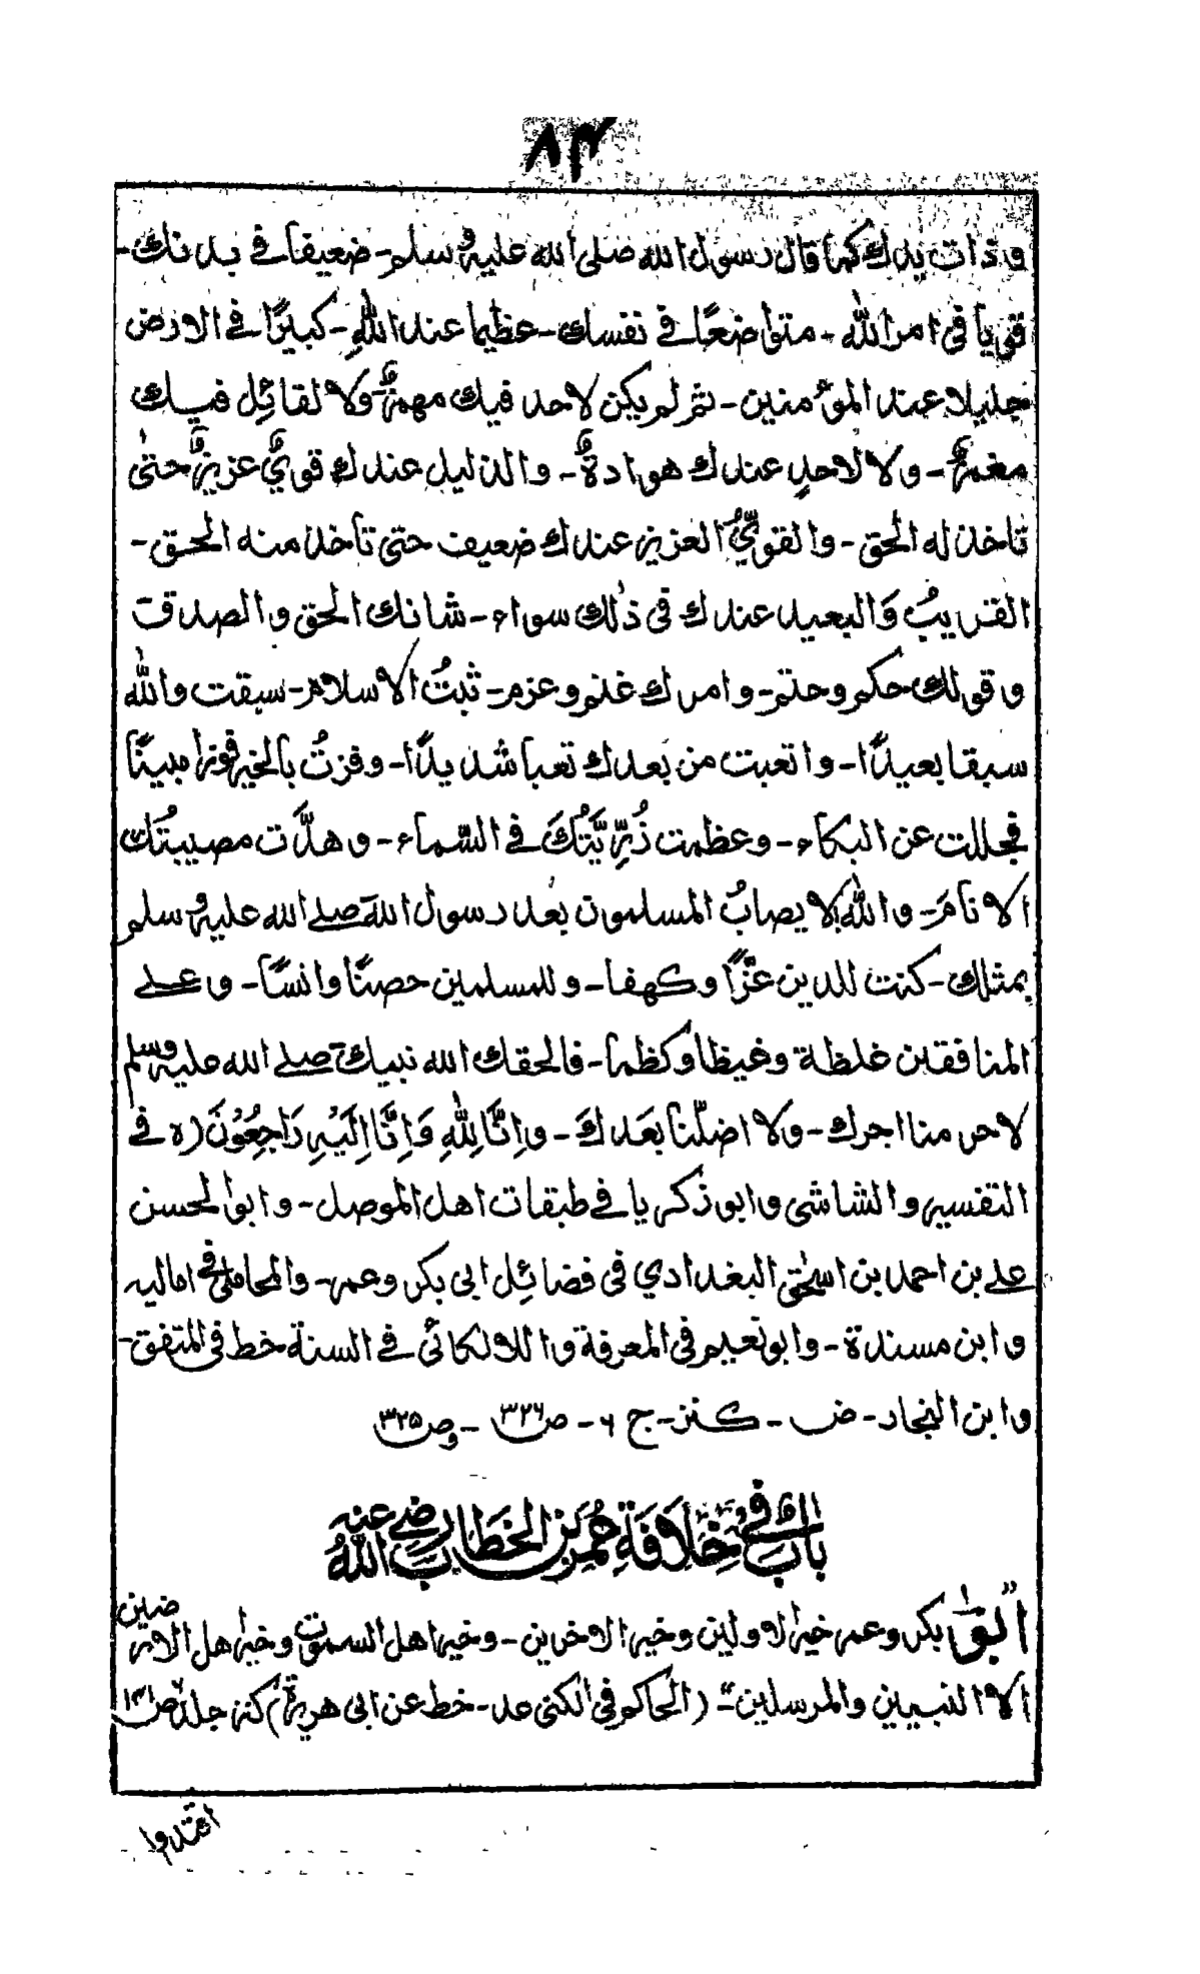 ۸۳
وذات يدك كما قال رسول الله صلى الله عليه وسلم - ضعيفا في بدنك -
قويا في امر الله - متواضعًا في نفسك - عظيما عند اللهِ - كبيرًا في الارض
جليلا عند المؤمنين - ثم لم يكن لاحد فيك مهمزٌ ولا لقائل فيك
مغمزٌ - ولا لاحدٍ عندك هوادةٌ - والذليل عندك قويٌّ عزيزٌ حتىٰ
تاخذ له الحق - والقويُّ العزيز عندك ضعيف حتى تاخذ منه الحق -
القريبُ وَالبعيد عندك في ذٰلك سواء - شانك الحق والصدق
وقولك حكم وحتم - وامرك غنم وعزم - ثبتُ الاسلام - سبقت والله
سبقا بعيدًا - واتعبت من بعدك تعبا شديدًا - وفزتُ بالخير فوزا مبينًا
فجللت عن البكاء - وعظمت ذُرِّيَّتُكَ في السّماء - وهدَّت مصيبتُك
الانامَ - والله لا يصابُ المسلمون بعد رسول الله صلے الله عليه وسلم
بمثلك - كنت للدين عزًّا وكهفا - وللمسلمين حصنًا وانسًا - وعلے
المنافقين غلظة وغيظا وكظما - فالحقك الله نبيك صلے الله عليه وسلم
لاحرمنا اجرك - ولا اضلّنا بعَدكَ - واِنَّا لِلهِ وَاِنَّا اِلَيْهِ رَاجِعُوْنَ (ه في
التفسير والشاشي وابو ذكريا في طبقات اهل الموصل - وابو الحسن
علے بن احمد بن اسحٰق البغدادي في فضائل ابى بكر وعمر - والمحاملي في اماليه
وابن مسندة - وابو نعيم في المعرفة واللالكائي في السنة خط في المتفق -
وابن النجار - ض - كنز - ج ۶ - ص ۳۲۶ - وص ۳۲۵
بابٌ فِيْ خِلَافَةِ عُمَرَ بْنِ الخَطَاب رضي اللهُ عنه
"ابو بكر وعمر خير الاولين وخير الاخرين - وخير اهل السمٰوٰت وخير اهل الارضين
الا النبيين والمرسلين" - (الحاكم في الكنى عد - خط عن ابى هريرة) كنز جلد ص
اقتدوا